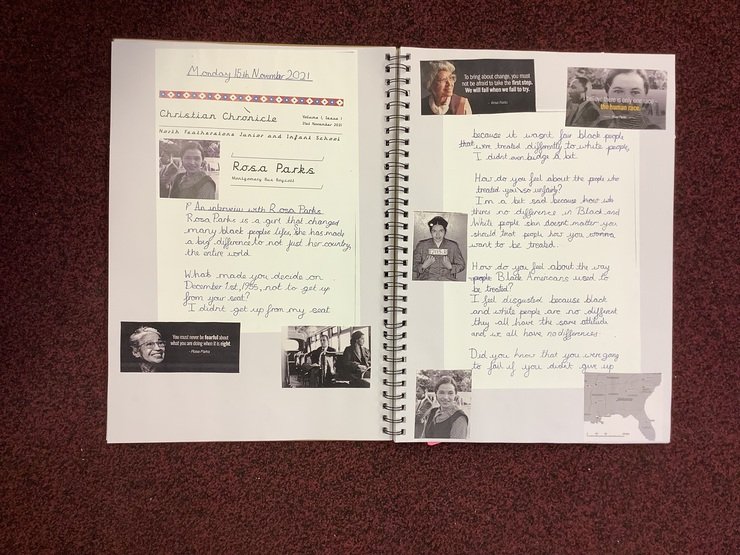 Monday 15th November 2021
Christian Chronicle
Volume 1, Issue 1
21st November 2021
North Featherstone Junior and Infant School
Rosa Parks
Montgomery Bus Boycott
An interview with Rosa Parks
Rosa Parks is a girl that changed
many black peoples lifes, she has made
a big difference to not just her country,
the entire world
What made you decide on
December 1st, 1955, not to get up
from your seat?
I didnt get up from my seat
You must never be fearful about
what you are doing when it is right.
- Rosa Parks
To bring about change, you must
not be afraid to take the first step.
We will fail when we fail to try.
- Rosa Parks
I believe there is only one race -
the human race.
- Rosa Parks
because it wasnt fair black people
that were treated differently to white people,
I didnt even budge a bit.
How do you feel about the people who
treated you so unfairly?
I'm a bit sad because
theres no difference in Black and
White people skin doesnt matter you
should treat people how you wanna
want to be treated.
How do you feel about the way
people Black Americans used to
be treated?
I feel disgusted because black
and white people are no different
they all have the same attitude
and we all have no differences
Did you know that you were going
to fail if you didnt give up